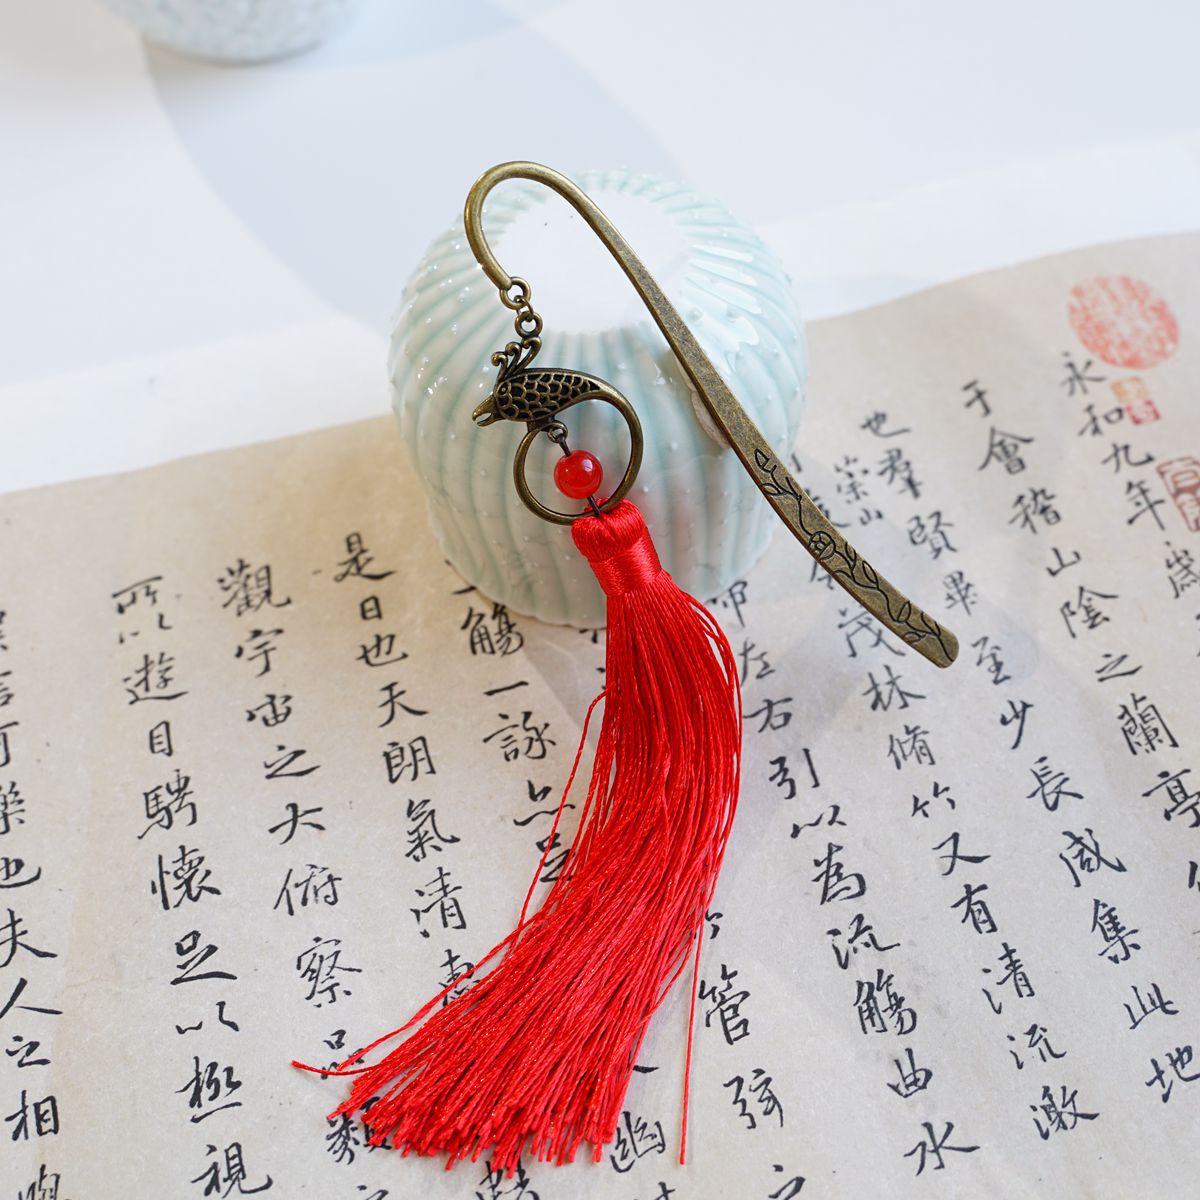 永和九年歲
于會稽山陰之蘭亭
也羣賢畢至少長咸集此地
崇山
茂林脩竹又有清流激
帶左右引以為流觴曲水
管弦
觴一詠亦足
幽
是日也天朗氣清惠
觀宇宙之大俯察品類
所以遊目騁懷足以極視
樂也夫人之相